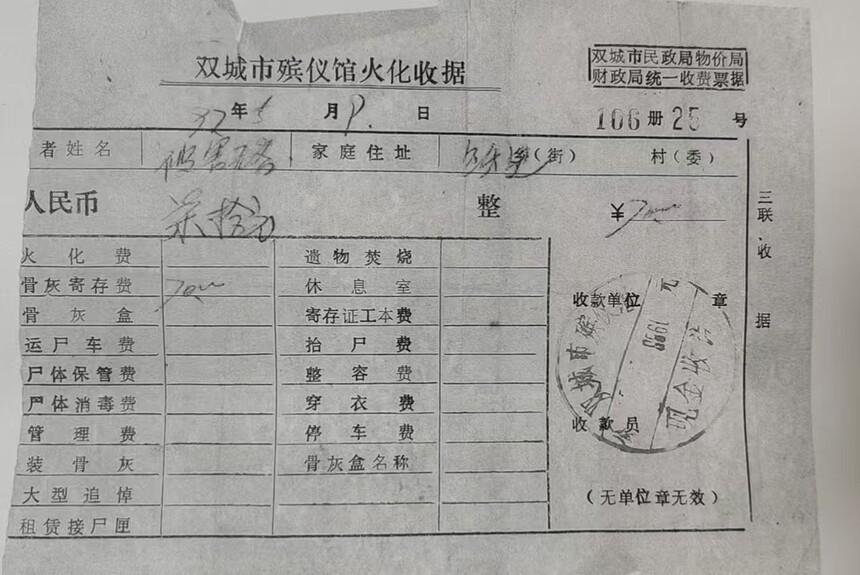 双城市殡仪馆火化收据
双城市民政局物价局
财政局统一收费票据
年 5 月 9 日
106 册 25 号
者姓名 家庭住址 乡(街) 村(委)
人民币 柒拾元 整 ¥ 70.00
火化费 遗物焚烧
骨灰寄存费 70.00 休息室
骨灰盒 寄存证工本费
运尸车费 抬尸费
尸体保管费 整容费
尸体消毒费 穿衣费
管理费 停车费
装骨灰 骨灰盒名称
大型追悼
租赁接尸匣
收款单位 章
收款员
(无单位章无效)
三联.收据
城市殡
现金收讫